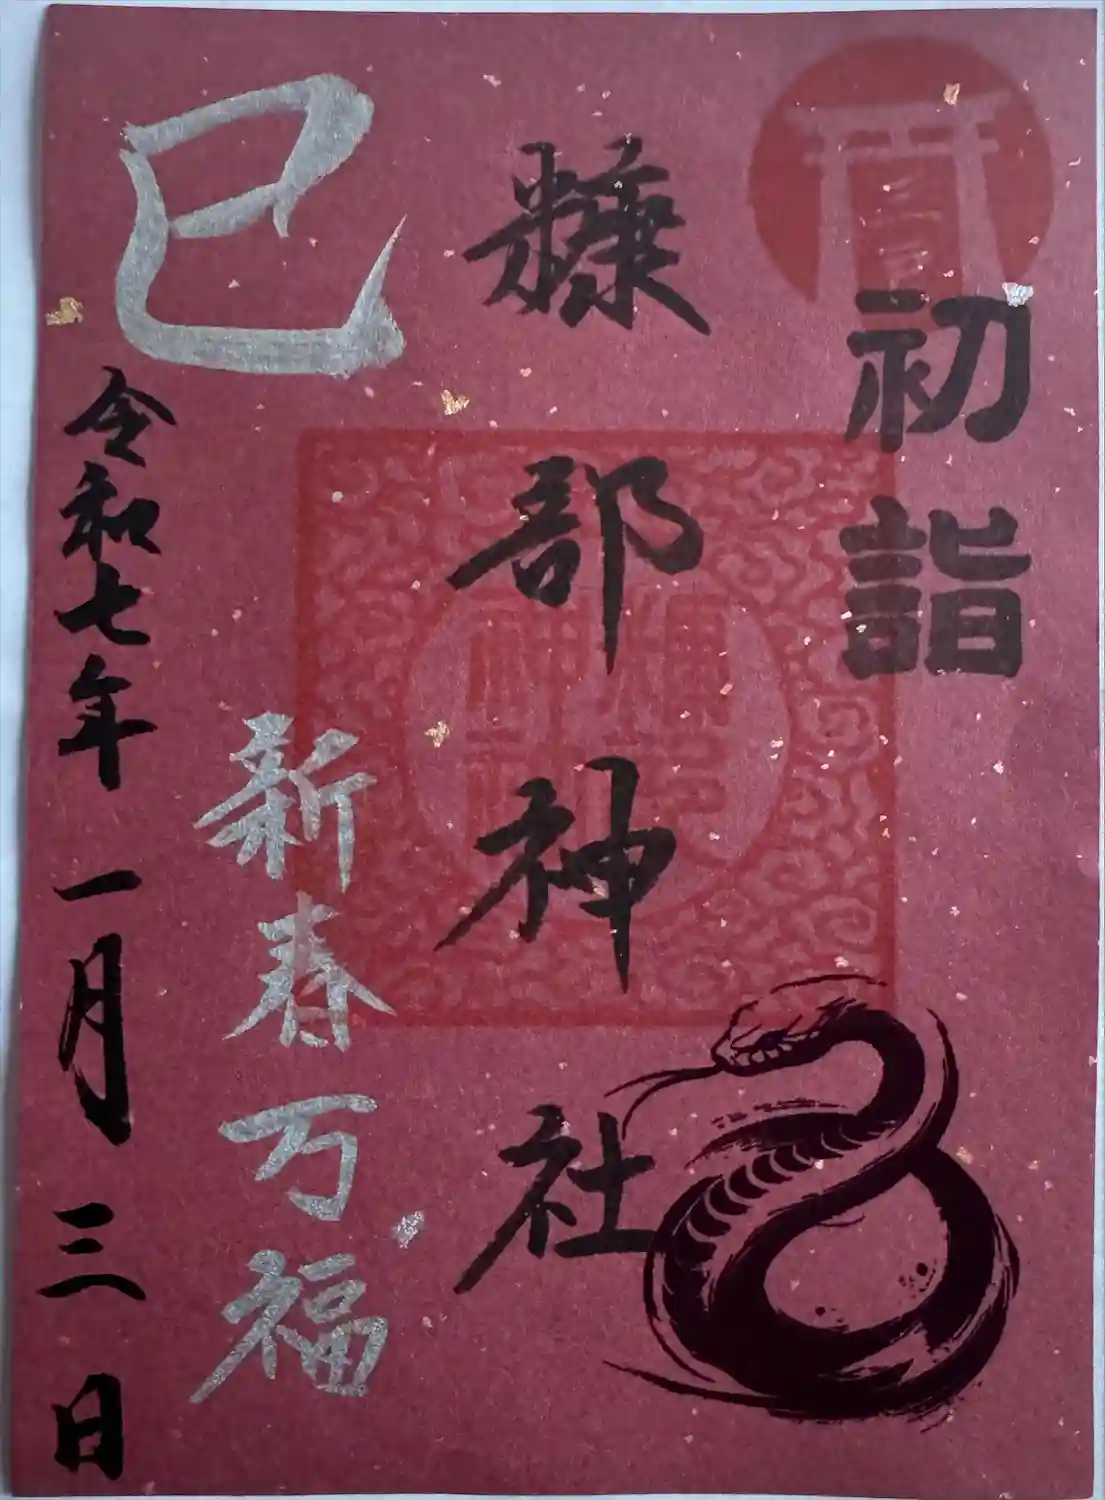 初詣
糠部神社
巳
新春万福
令和七年一月三日